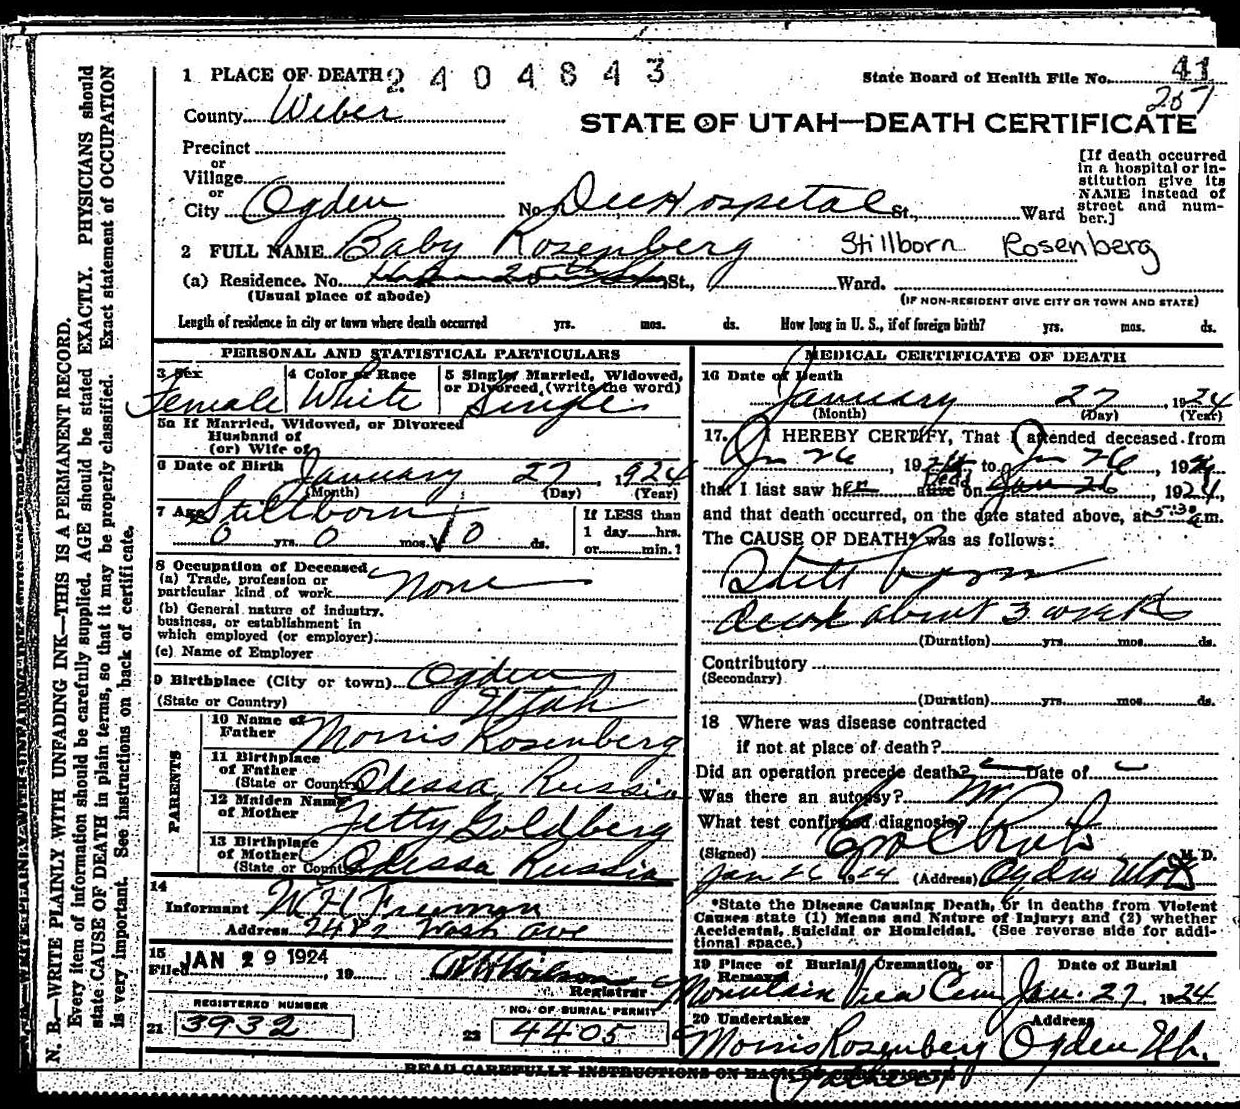 1 PLACE OF DEATH 2404843
State Board of Health File No. 41
207
County Weber
STATE OF UTAH—DEATH CERTIFICATE
Precinct
or
Village
or
City Ogden No. Dee Hospetal St., Ward
[If death occurred
in a hospital or in-
stitution give its
NAME instead of
street and num-
ber.]
2 FULL NAME Baby Rosenberg Stillborn Rosenberg
(a) Residence. No. 25th St., Ward.
(Usual place of abode) (IF NON-RESIDENT GIVE CITY OR TOWN AND STATE)
Length of residence in city or town where death occurred yrs. mos. ds. How long in U. S., if of foreign birth? yrs. mos. ds.
PERSONAL AND STATISTICAL PARTICULARS
3 Sex 4 Color or Race 5 Single, Married, Widowed,
or Divorced, (write the word)
Female White Single
5a If Married, Widowed, or Divorced
Husband of
(or) Wife of
6 Date of Birth January 27, 1924
(Month) (Day) (Year)
7 Age Stillborn If LESS than
1 day hrs.
or min.?
0 yrs. 0 mos. 0 ds.
8 Occupation of Deceased
(a) Trade, profession or
particular kind of work None
(b) General nature of industry,
business, or establishment in
which employed (or employer)
(c) Name of Employer
9 Birthplace (City or town) Ogden
(State or Country) Utah
PARENTS
10 Name of
Father Morris Rosenberg
11 Birthplace
of Father
(State or Country) Odessa, Russia
12 Maiden Name
of Mother Jetty Goldberg
13 Birthplace
of Mother
(State or Country) Odessa Russia
14
Informant W H Freeman
Address 2482 Wash Ave
15
Filed JAN 29 1924, 19 R H Wilson
Registrar
REGISTERED NUMBER NO. OF BURIAL PERMIT
21 3932 22 4405
MEDICAL CERTIFICATE OF DEATH
16 Date of Death
January 27 1924
(Month) (Day) (Year)
17. I HEREBY CERTIFY, That I attended deceased from
Jan 26, 1924 to Jan 26, 1924
Dead
that I last saw her alive on Jan 26, 1924,
and that death occurred, on the date stated above, at 5:30 a.m.
The CAUSE OF DEATH* was as follows:
Still born
dead about 3 weeks
(Duration) yrs. mos. ds.
Contributory
(Secondary)
(Duration) yrs. mos. ds.
18 Where was disease contracted
if not at place of death?
Did an operation precede death? Date of
Was there an autopsy? no
What test confirmed diagnosis?
(Signed) M. D.
Jan 26 1924 (Address) Ogden Utah
*State the Disease Causing Death, or in deaths from Violent
Causes state (1) Means and Nature of Injury; and (2) whether
Accidental, Suicidal or Homicidal. (See reverse side for addi-
tional space.)
19 Place of Burial, Cremation, or
Removal Date of Burial
Mountain View Cem Jan. 27 1924
20 Undertaker Address
Morris Rosenberg Ogden Ut.
(Father)
READ CAREFULLY INSTRUCTIONS ON BACK OF CERTIFICATE
N. B.—WRITE PLAINLY WITH UNFADING INK—THIS IS A PERMANENT RECORD.
Every item of information should be carefully supplied. AGE should be stated EXACTLY. PHYSICIANS should
state CAUSE OF DEATH in plain terms, so that it may be properly classified. Exact statement of OCCUPATION
is very important. See instructions on back of certificate.